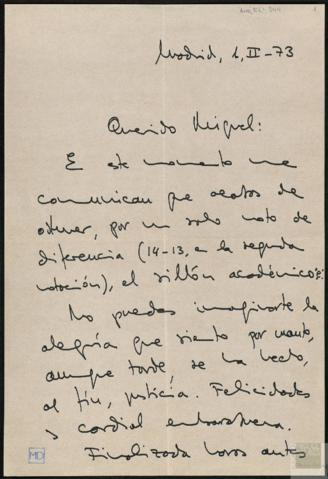 Madrid, 1, II-73
Querido Miguel:
E este momento me
comunican que acabas de
obtener, por un solo voto de
diferencia (14-13, en la segunda
votación), el sillón académico "E".
No puedes imaginarte la
alegría que siento por cuanto,
aunque tarde, se ha hecho,
al fin, justicia. Felicidades
y cordial enhorabuena.
Finalizada horas antes
MD